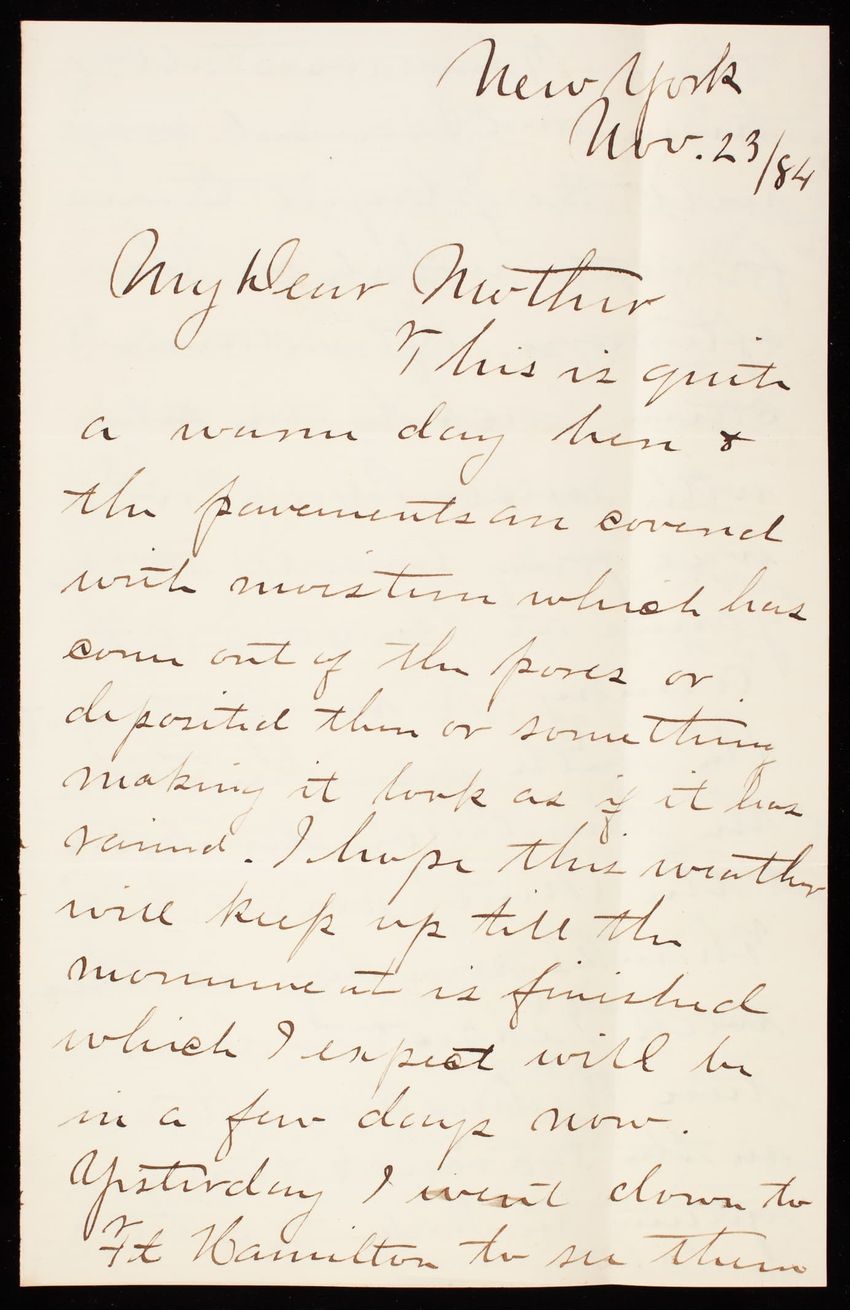 New York
Nov. 23/84
My Dear Mother
This is quite
a warm day here &
the pavements are covered
with moisture which has
come out of the pores or
deposited there or something
making it look as if it has
rained. I hope this weather
will keep up till the
monument is finished
which I expect will be
in a few days now.
Yesterday I went down to
Ft Hamilton to see them